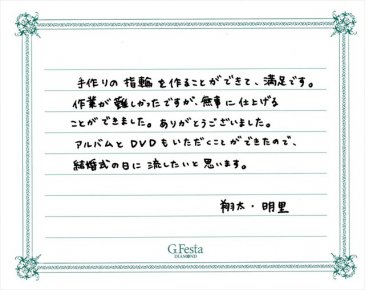 手作りの指輪を作ることができて、満足です。
作業が難しかったですが、無事に仕上げる
ことができました。ありがとうございました。
アルバムとDVDもいただくことができたので、
結婚式の日に流したいと思います。
翔太・明里
G.Festa
DIAMOND